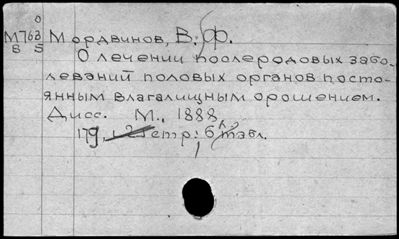 О
М76в Мордвинов, В. Ф.
В 5
О лечении послеродовых забо-
леваний половых органов посто-
янным влагалищным орошением.
Дисс. М., 1888.
179, стр. 6 табл.